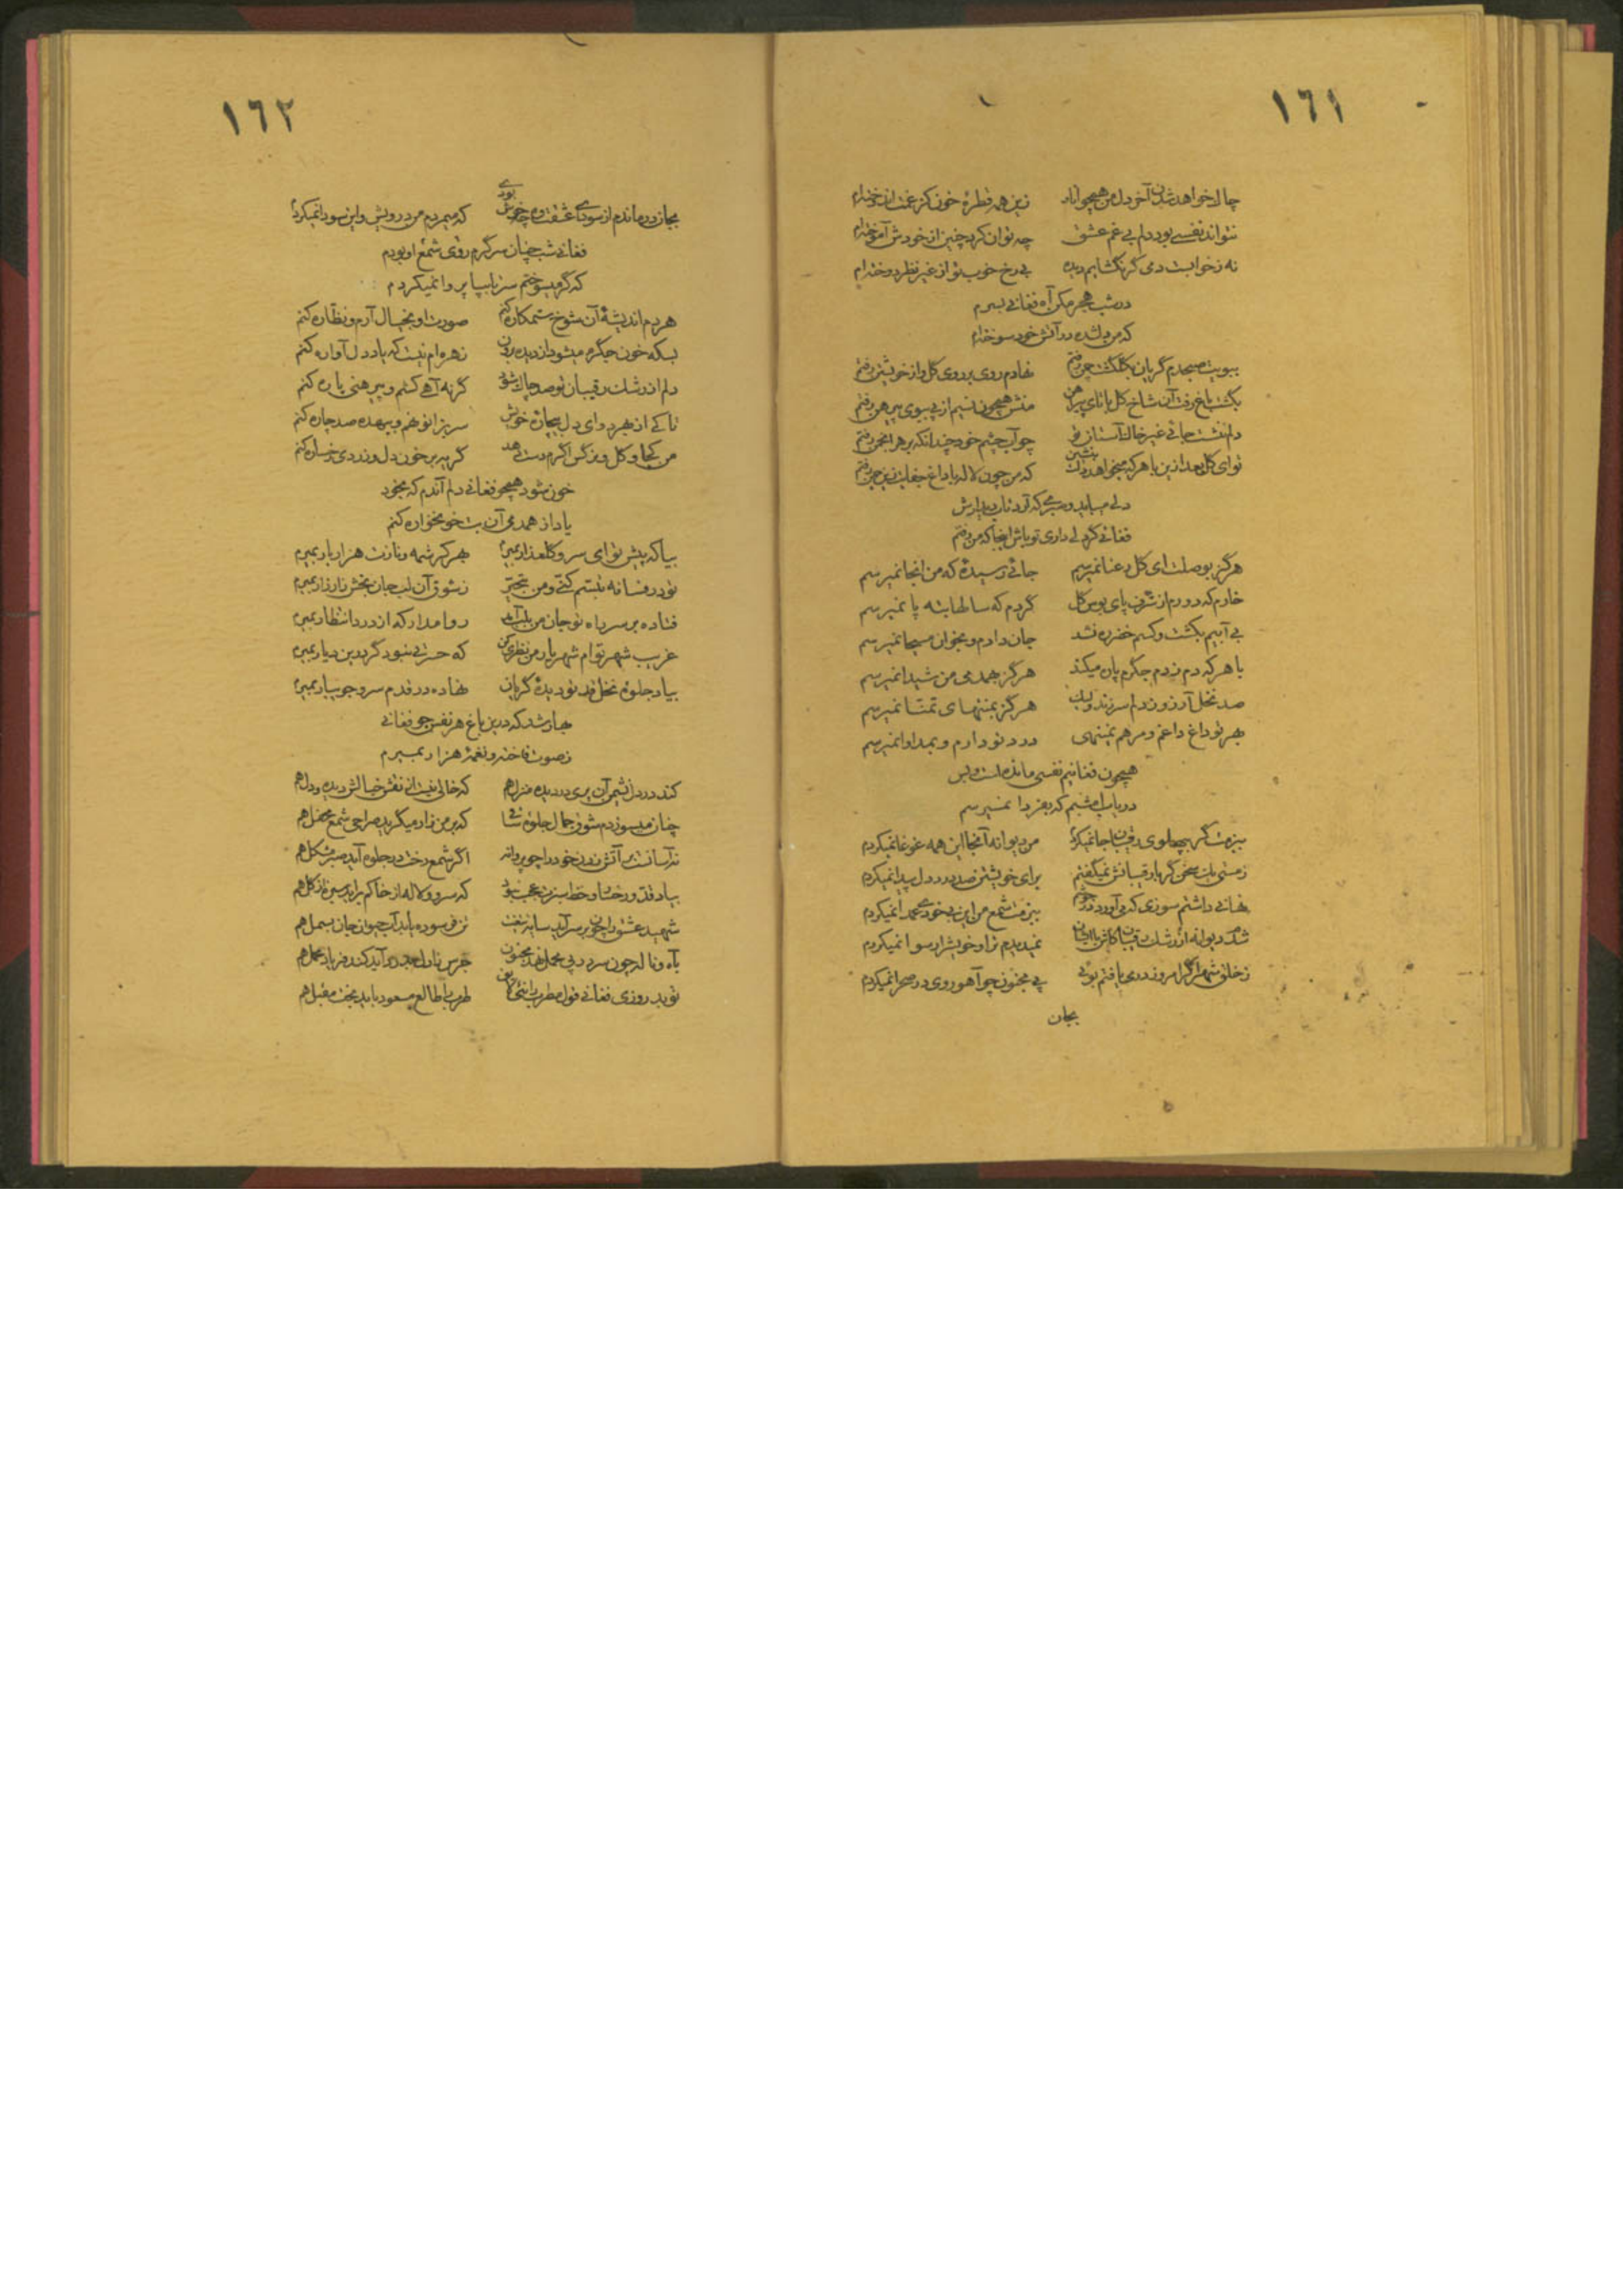 ١٦١
چاک خواهد شدن آخر دل من همچو انار زین همه قطرهٔ خون کز غمت اندوخته‌ام
نتواند نفسی بود دلم بی غم عشق چه توان کرد چنین از خودش آموخته‌ام
نه ز خوابست دمی گر نگشایم دیده بی رخ خوب تو از غیر نظر دوخته‌ام
در شب هجر مکن آه فغانی بسرم
که من دلشده در آتش خود سوخته‌ام
ببویت صبحدم گریان بگلگشت چمن رفتم نهادم روی بر روی گل و از خویشتن رفتم
بگشت باغ رفت آن شاخ گل با نازکی پیرهن منش همچون نسیم از پی ببوی پیرهن رفتم
دلم ننشست جائی غیر خاک آستان تو چو آب چشم خود چندانکه بر هر انجمن رفتم
تو ای گل بعد ازین با هر که میخواهد دلت بنشین که من چون لاله با داغ جفایت زین چمن رفتم
دلی میباید و صبری که آرد تاب دیدارش
فغانی گر دلی داری تو باش اینجا که من رفتم
هرگز بوصلت ای گل رعنا نمیرسم جائی رسیدهٔ که من آنجا نمیرسم
خارم که دورم از شرف پای بوس گل گردم که سالها بته پا نمیرسم
بی آبیم بکشت و کسم خضر ره نشد جان دادم و بخوان مسیحا نمیرسم
با هر که دم زدم جگرم پاره میکند هرگز بهمدمی من شیدا نمیرسم
صد نخل آرزو ز دلم سر زند ولیک هرگز بمنتهای تمنا نمیرسم
بهر تو داغ داغم و مرهم نمینهی درد تو دارم و بمداوا نمیرسم
همچون فغانیم نفسی مانده است و بس
دریاب امشبم که بفردا نمیرسم
ببزمت گر بپهلوی رقیبان جا نمیکردم من دیوانه آنجا این همه غوغا نمیکردم
ز مستی یک سخن گر با رقیبانش نمیگفتم برای خویشتن صد درد دل پیدا نمیکردم
نهانی داشتم سوزی که می‌آورد در ببزمت شمع من این بیخودی عمدا نمیکردم
شدم دیوانه از رشک رقیبان کاش با ایشان نمیدیدم ترا و خویش را رسوا نمیکردم
ز خلق شهر اگر امروز دردی یافتم بوئی پی مجنون چو آهو روی در صحرا نمیکردم
بجان
١٦٢
بجان درماندم از سودای عشقت وه چه خوش بودی که میمردم من درویش و این سودا نمیکردم
فغانی شب چنان سرگرم روی شمع او بودم
که گر میسوختم سر تا بپا پروا نمیکردم
هر دم اندیشهٔ آن شوخ ستمکاره کنم صورت او بخیال آرم و نظاره کنم
بسکه خون جگرم میشود از دیده روان زهره‌ام نیست که یاد دل آواره کنم
دلم از رشک رقیبان تو صد چاک شود گر نه آهی کشم و پیرهنی پاره کنم
تا کی از بهر دوای دل بیچارهٔ خویش سر بزانو نهم و بیهده صد چاره کنم
من کجا و گل و نرگس اگرم دست دهد گریه بر خون دل و زردی رخساره کنم
خون شود همچو فغانی دلم آندم که بخود
یاد از همدمی آن بت خونخواره کنم
بیا که پیش تو ای سرو گلعذار بمیرم بهر کرشمه و نازت هزار بار بمیرم
تو در فسانه تبسم کنی و من بتحیر ز شوق آن لب جان بخش زار زار بمیرم
فتاده بر سر راه تو جان من بلب آمد روا مدار که از درد انتظار بمیرم
غریب شهر توام شهریار من نظری کن که حسرتی نبود گر درین دیار بمیرم
بیاد جلوهٔ نخل قد تو دیدهٔ گریان نهاده در قدم سرو جویبار بمیرم
بهار شد که درین باغ هر نفس چو فغانی
ز صوت فاخته و نغمهٔ هزار بمیرم
کند در دل نشیمن آن پری در دیده منزل هم که خالی نیست از نقش خیالش دیده و دل هم
چنان میسوزدم شوق جمال جلوهٔ ساقی که بر من زار میگرید صراحی شمع محفل هم
نه آسانست بر آتش زدن خود را چو پروانه اگر شمع رخت در جلوه آید صبر مشکل هم
بیاد قد و رخسار و خط سبزت عجب نبود که سرو و لاله از خاکم برآید سبزه از گل هم
شهید عشق را چون بر سر آید سایهٔ تیغت تن فرسوده یابد آب حیوان جان بسمل هم
بآه و ناله چون سر در پی محمل نهد مجنون جرس نالد در آید کند فریاد محمل هم
نوید روزی فغانی قول مطرب باشی طرب با طالع مسعود باید بخت مقبل هم